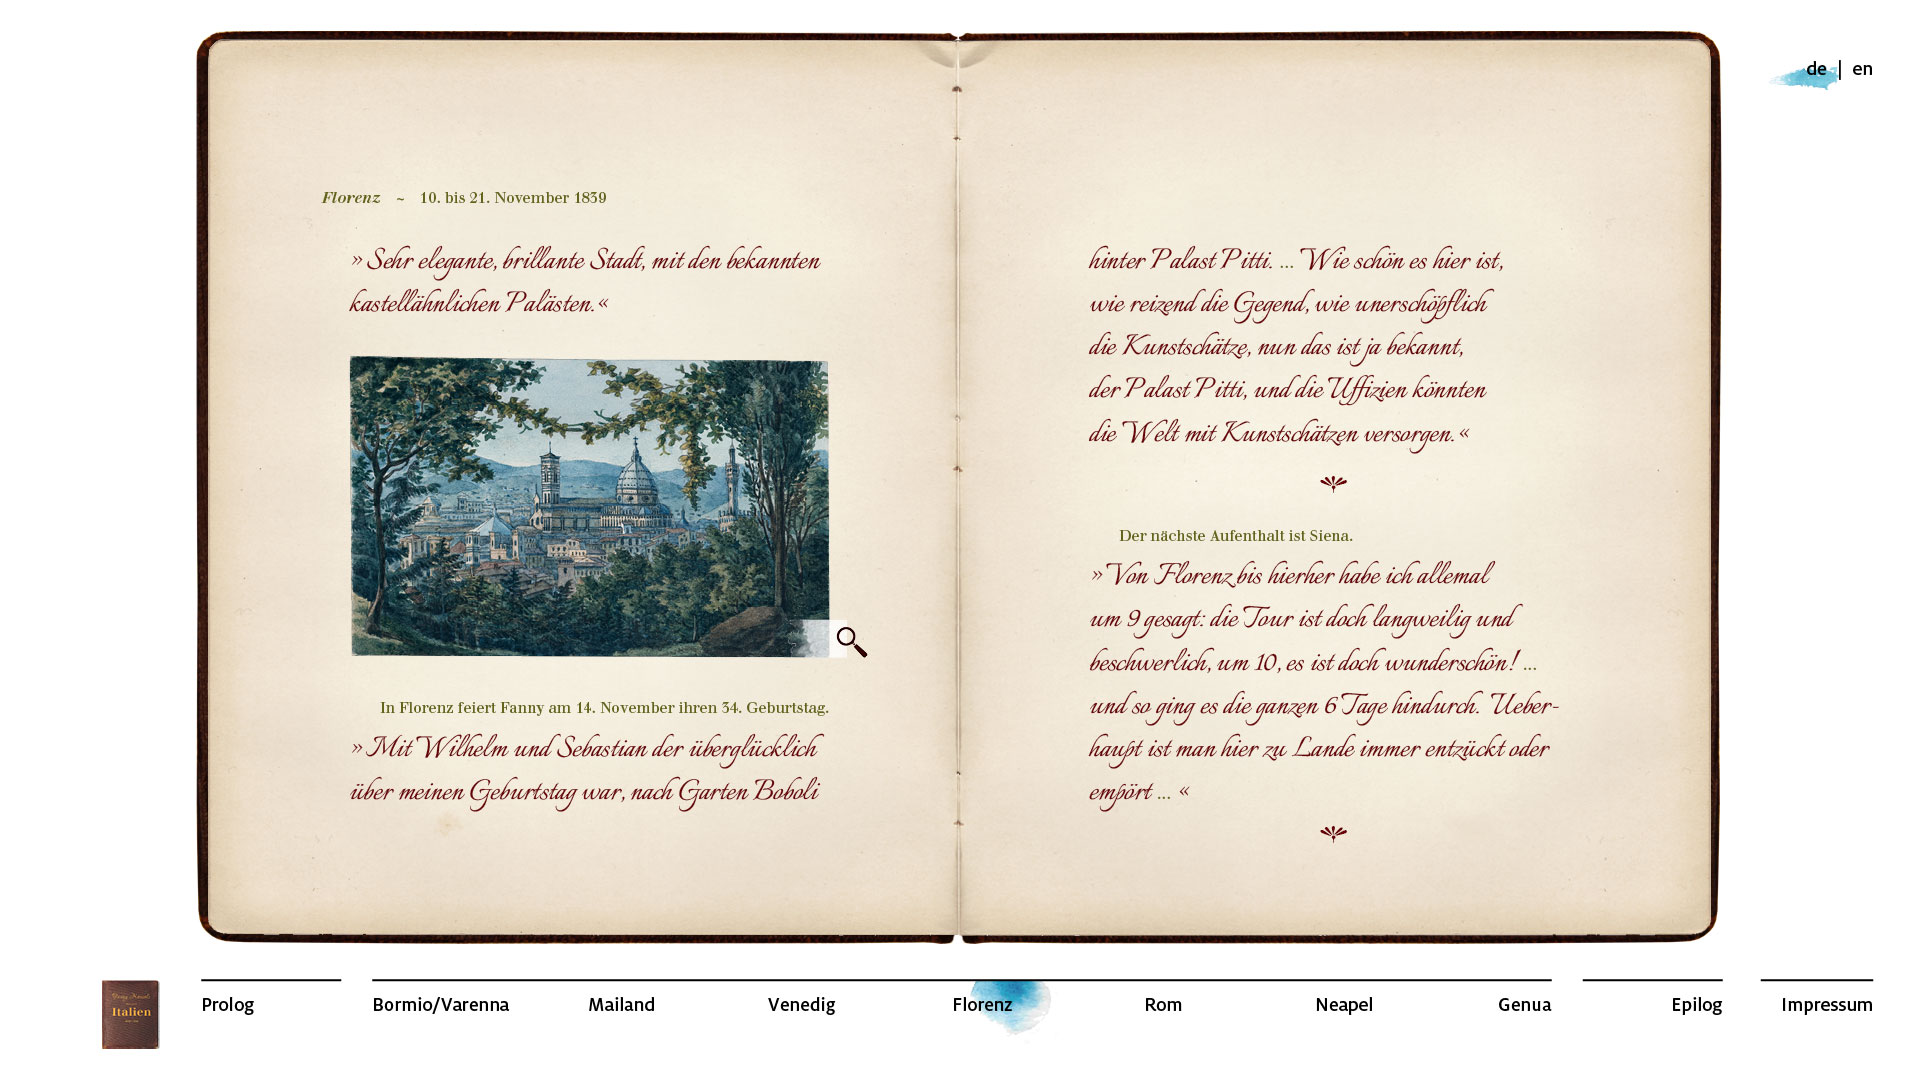 de | en
Florenz ~ 10. bis 21. November 1839
» Sehr elegante, brillante Stadt, mit den bekannten
kastellähnlichen Palästen.«
In Florenz feiert Fanny am 14. November ihren 34. Geburtstag.
» Mit Wilhelm und Sebastian der überglücklich
über meinen Geburtstag war, nach Garten Boboli
hinter Palast Pitti. ... Wie schön es hier ist,
wie reizend die Gegend, wie unerschöpflich
die Kunstschätze, nun das ist ja bekannt,
der Palast Pitti, und die Uffizien könnten
die Welt mit Kunstschätzen versorgen.«
Der nächste Aufenthalt ist Siena.
» Von Florenz bis hierher habe ich allemal
um 9 gesagt: die Tour ist doch langweilig und
beschwerlich, um 10, es ist doch wunderschön! ...
und so ging es die ganzen 6 Tage hindurch. Ueber-
haupt ist man hier zu Lande immer entzückt oder
empört ... «
Italien
Prolog
Bormio/Varenna
Mailand
Venedig
Florenz
Rom
Neapel
Genua
Epilog
Impressum